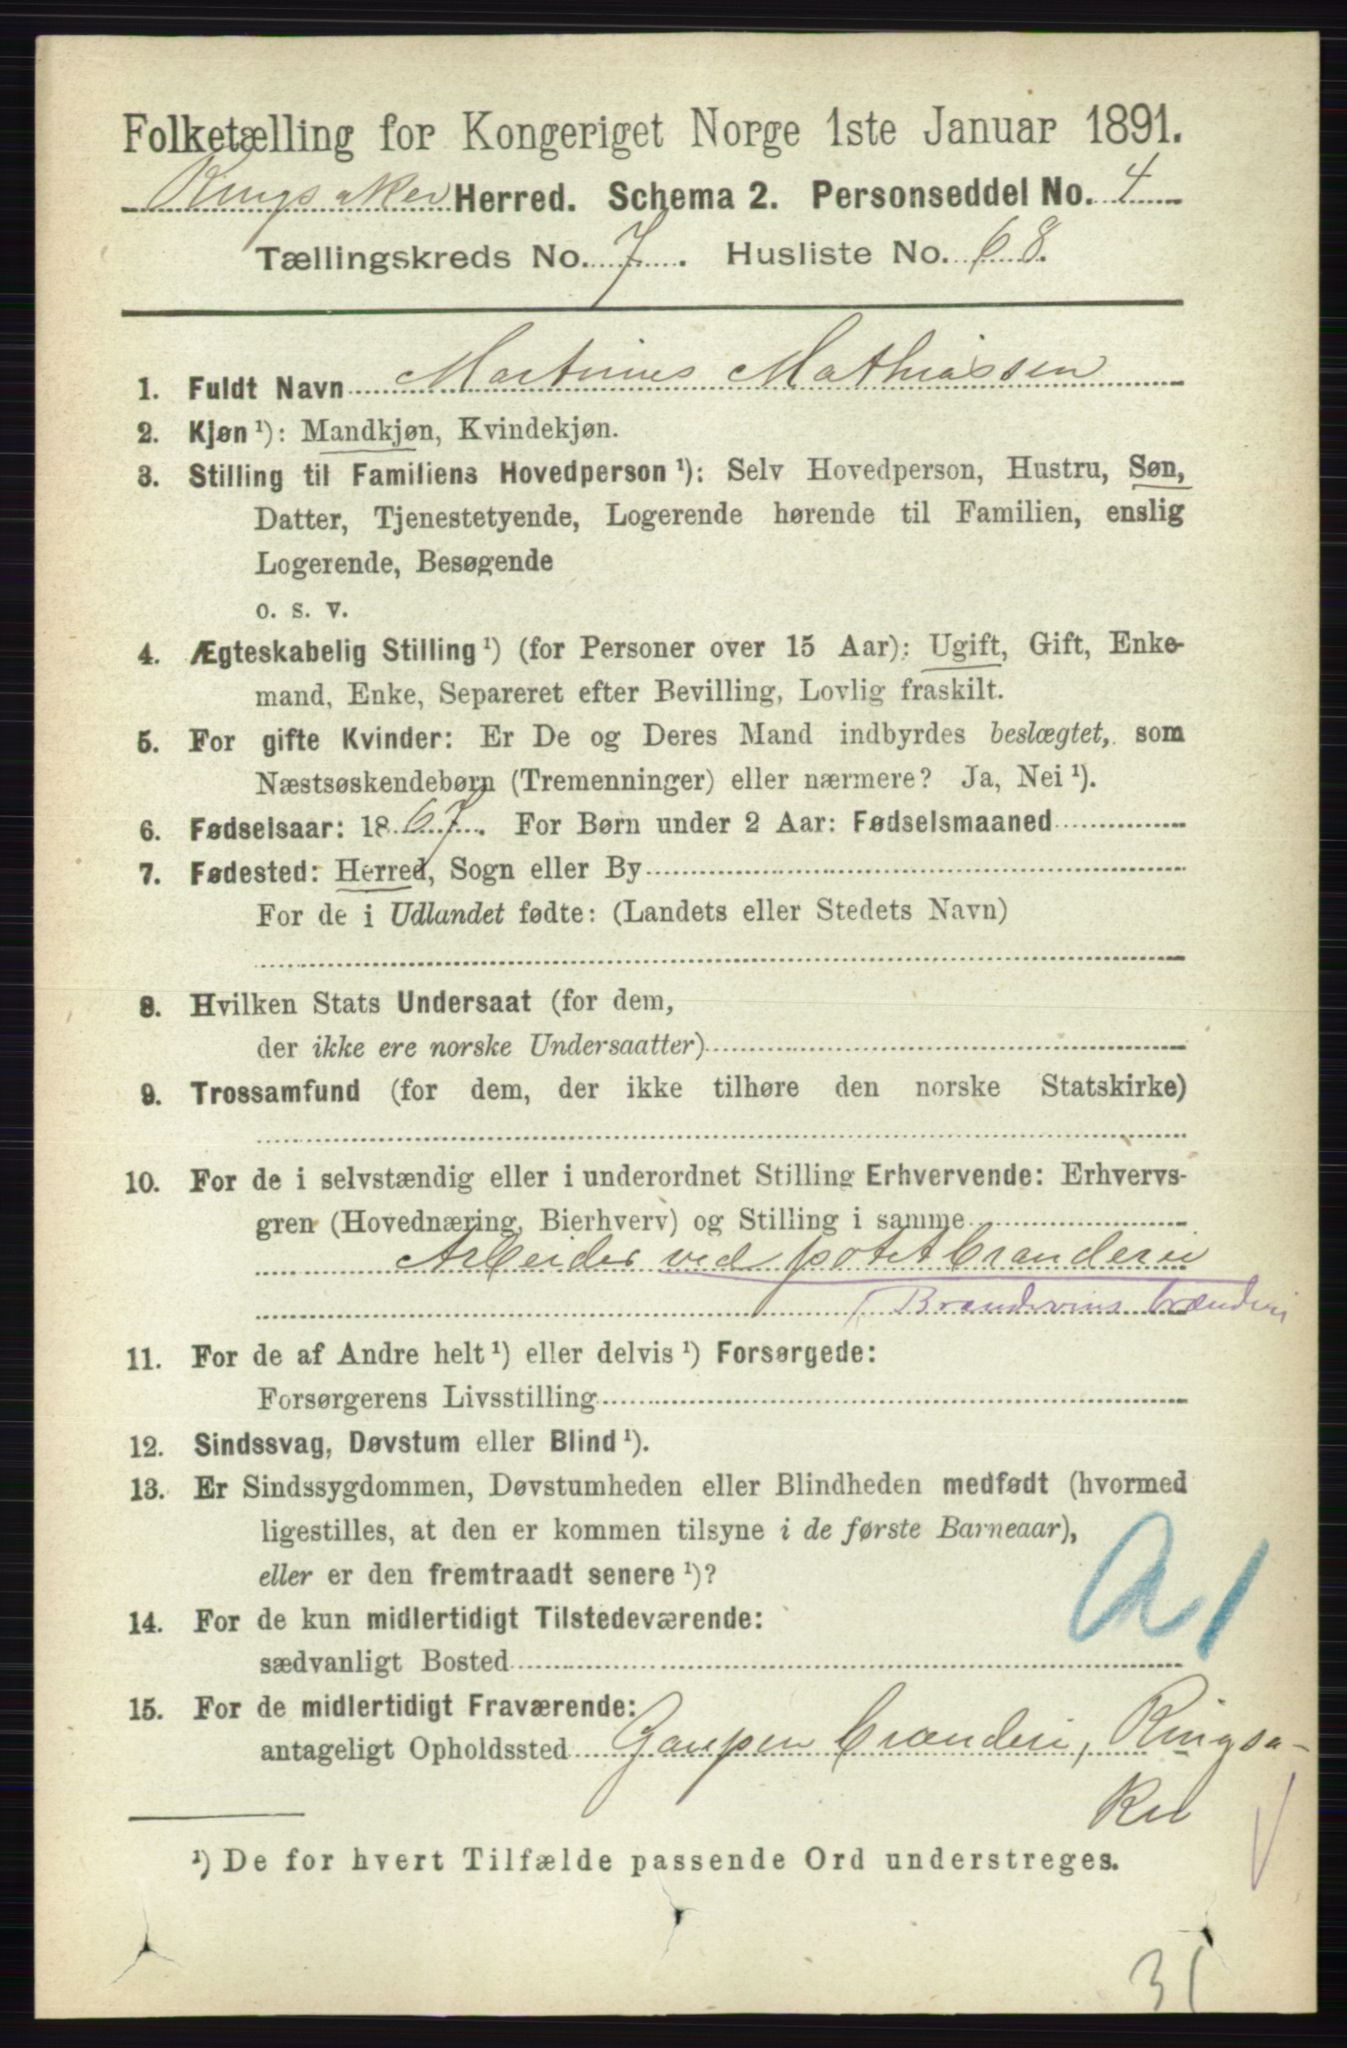 Folketælling for Kongeriget Norge 1ste Januar 1891.
Ringsaker Herred. Schema 2. Personseddel No. 4
Tællingskreds No. 7. Husliste No. 68.
1. Fuldt Navn Martinius Mathiassen
2. Kjøn ¹): Mandkjøn, Kvindekjøn.
3. Stilling til Familiens Hovedperson ¹): Selv Hovedperson, Hustru, Søn,
Datter, Tjenestetyende, Logerende hørende til Familien, enslig
Logerende, Besøgende
o. s. v.
4. Ægteskabelig Stilling ¹) (for Personer over 15 Aar): Ugift, Gift, Enke-
mand, Enke, Separeret efter Bevilling, Lovlig fraskilt.
5. For gifte Kvinder: Er De og Deres Mand indbyrdes beslægtet, som
Næstsøskendebørn (Tremenninger) eller nærmere? Ja, Nei ¹).
6. Fødselsaar: 1867. For Børn under 2 Aar: Fødselsmaaned
7. Fødested: Herred, Sogn eller By
For de i Udlandet fødte: (Landets eller Stedets Navn)
8. Hvilken Stats Undersaat (for dem,
der ikke ere norske Undersaatter)
9. Trossamfund (for dem, der ikke tilhøre den norske Statskirke)
10. For de i selvstændig eller i underordnet Stilling Erhvervende: Erhvervs-
gren (Hovednæring, Bierhverv) og Stilling i samme
Arbeider ved potetbranderie
Brændevinsbrænderi
11. For de af Andre helt ¹) eller delvis ¹) Forsørgede:
Forsørgerens Livsstilling
12. Sindssvag, Døvstum eller Blind ¹).
13. Er Sindssygdommen, Døvstumheden eller Blindheden medfødt (hvormed
ligestilles, at den er kommen tilsyne i de første Barneaar),
eller er den fremtraadt senere ¹)?
14. For de kun midlertidigt Tilstedeværende:
sædvanligt Bosted
15. For de midlertidigt Fraværende:
antageligt Opholdssted Gaupen Brænderi, Ringsa-
ker
¹) De for hvert Tilfælde passende Ord understreges.
31